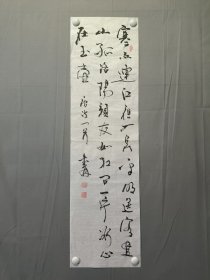 寒雨連江夜入吳平明送客楚
山孤洛陽親友如相問一片冰心
在玉壺 唐诗一首